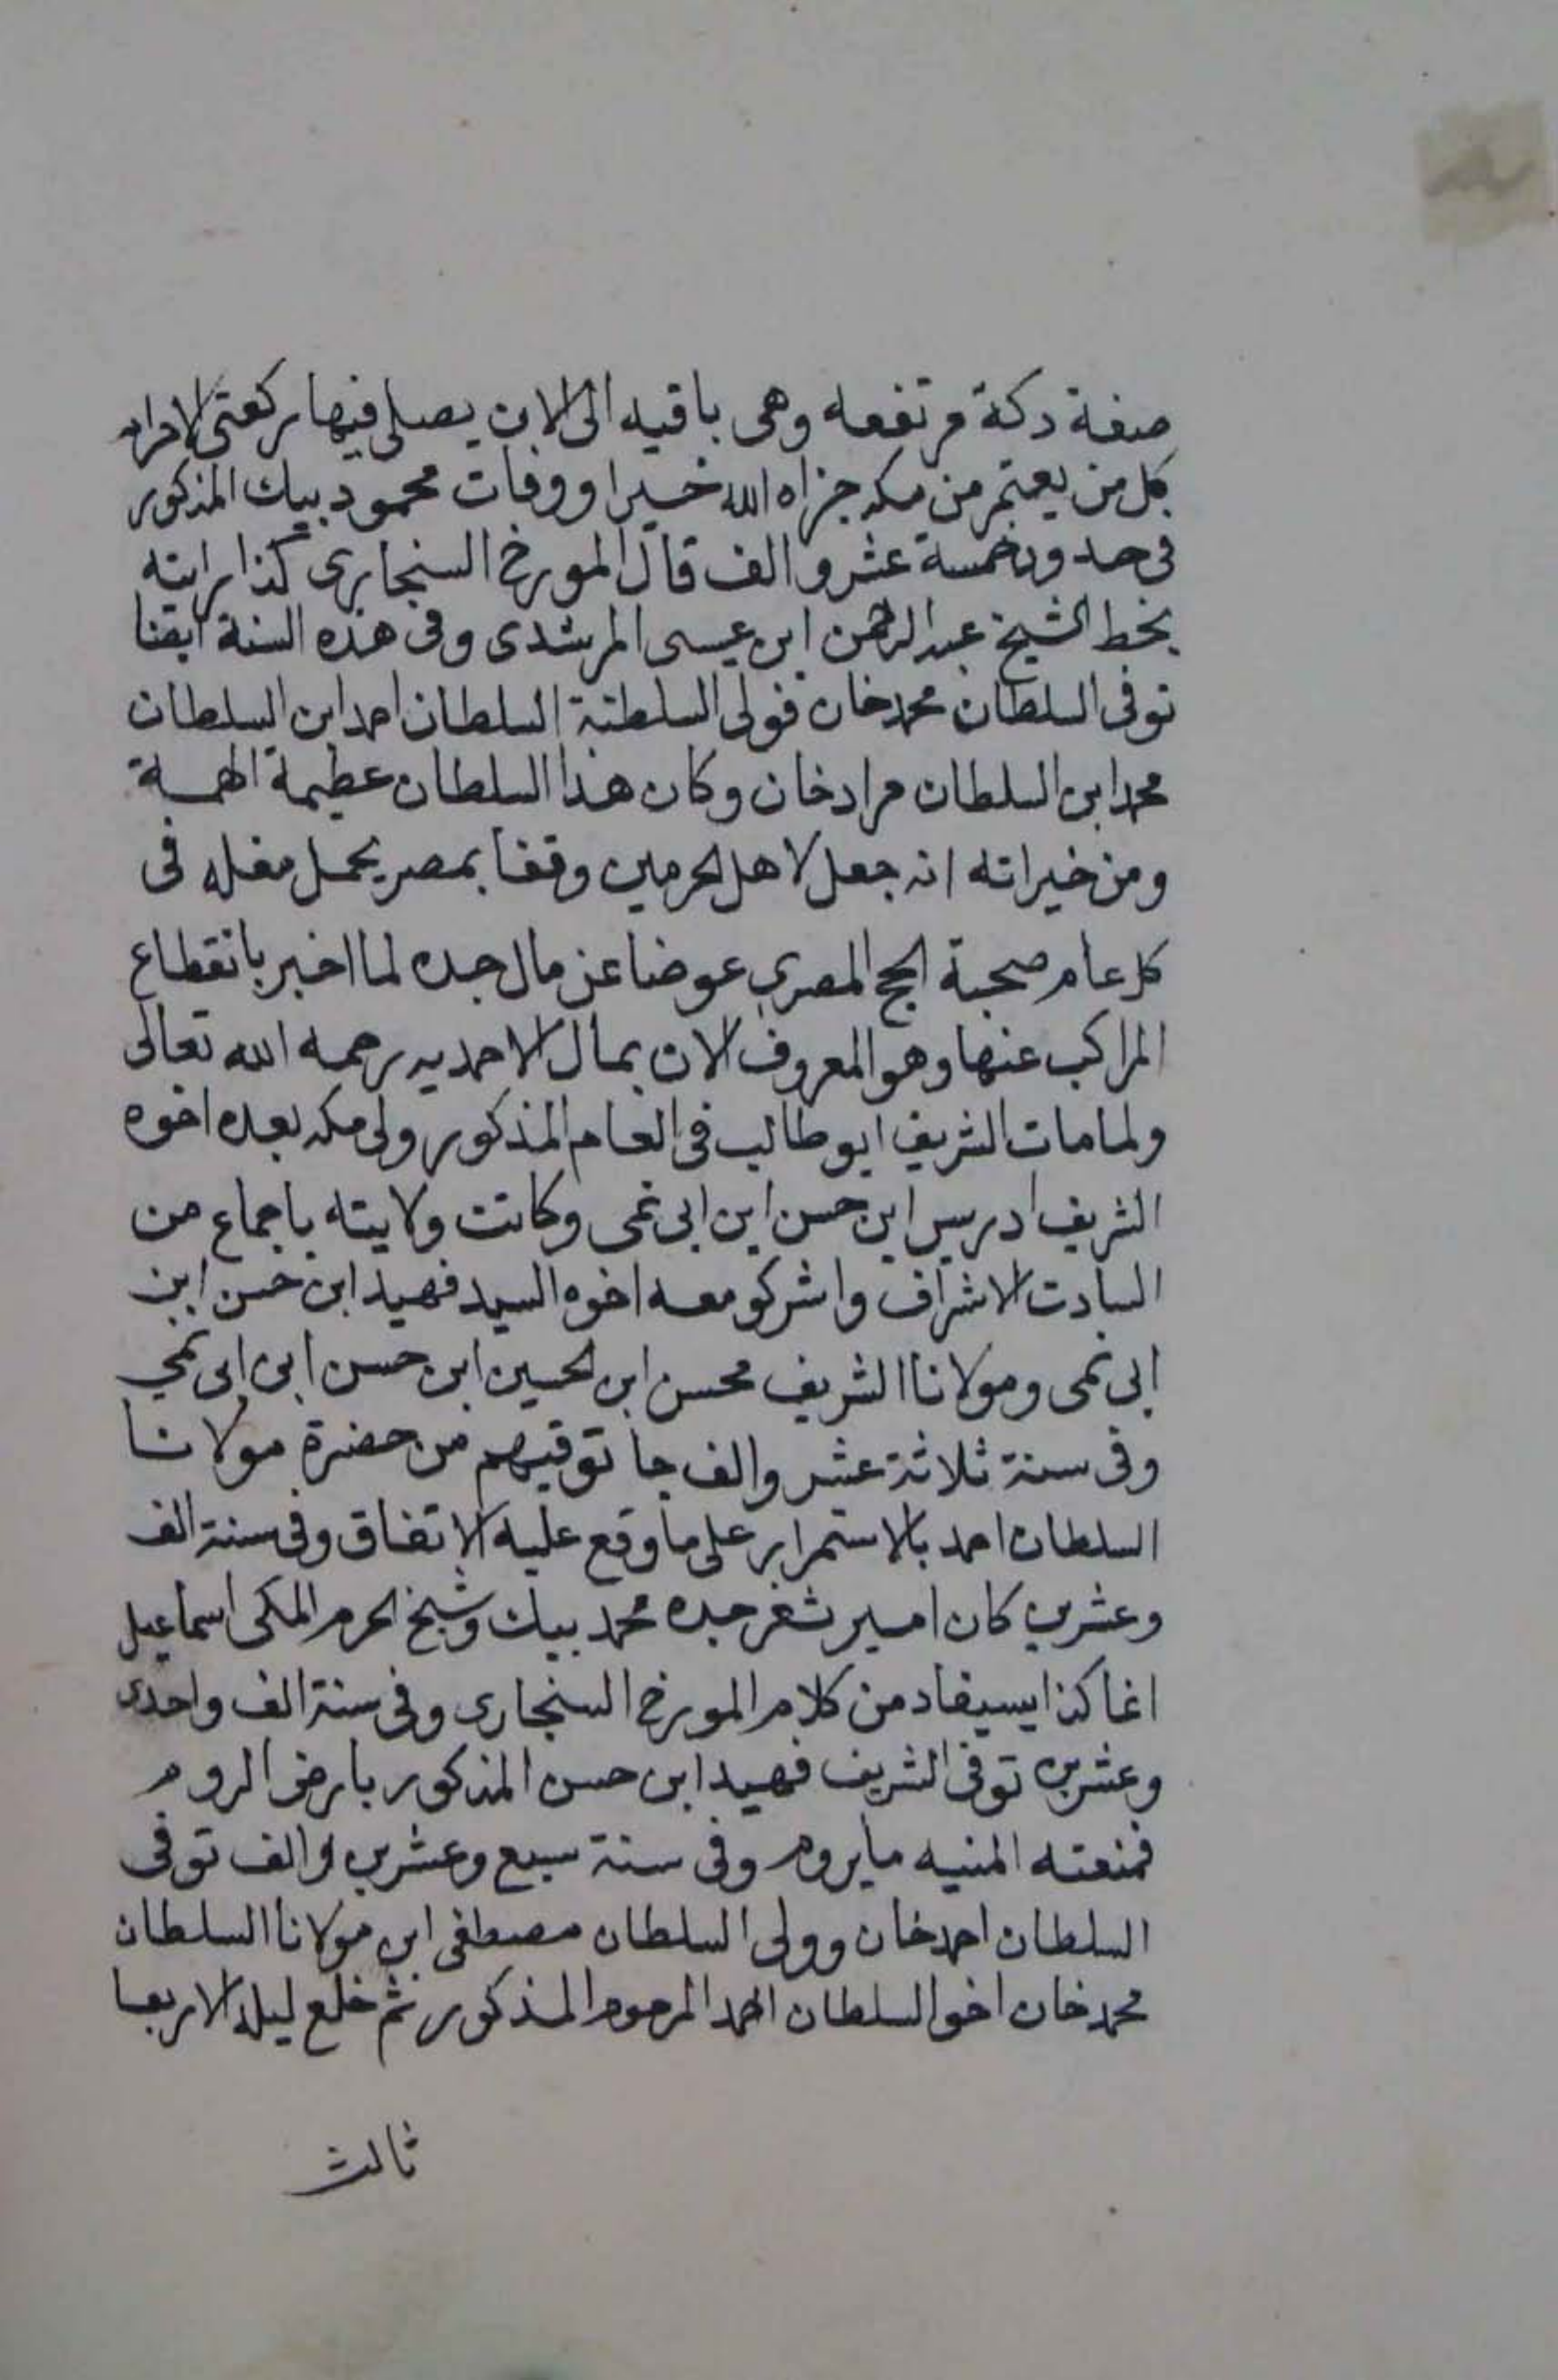 صفة دكة مرتفعه وهى باقيه الى الان يصلى فيها ركعتى الاحرام
كل من يعتمر من مكه جزاه الله خيرا ووفات محمود بيك المذكور
فى حدود خمسة عشر والف قال المورخ السنجارى كذا رايته
بخط الشيخ عبد الرحمن ابن عيسى المرشدى وفى هذه السنة ايضا
توفى السلطان محمد خان فولى السلطنة السلطان احمد ابن السلطان
محمد ابن السلطان مراد خان وكان هذا السلطان عظيمة الهمة
ومن خيراته انه جعل لاهل الحرمين وقفا بمصر يحمل مغله فى
كل عام صحبة الحج المصرى عوضا عن مال جده لما اخبر بانقطاع
المراكب عنها وهو المعروف الان بمال الاحمديه رحمه الله تعالى
ولما مات الشريف ابو طالب فى العام المذكور ولى مكه بعده اخوه
الشريف ادريس ابن حسن ابن ابى نمى وكانت ولايته باجماع من
السادت الاشراف واشركو معه اخوه السيد فهيد ابن حسن ابن
ابى نمى ومولانا الشريف محسن ابن الحسين ابن حسن ابن ابى نمي
وفى سنة ثلاثة عشر والف جا توقيهم من حضرة مولانا
السلطان احمد بالاستمرار على ما وقع عليه الاتفاق وفى سنة الف
وعشرين كان امير ثغر جده محمد بيك وشيخ الحرم المكى اسماعيل
اغا كذا يسيفاد من كلام المورخ السنجارى وفى سنة الف واحدى
وعشرين توفى الشريف فهيد ابن حسن المذكور بارض الروم
فمنعته المنيه ما يروم وفى سنة سبع وعشرين والف توفى
السلطان احمد خان وولى السلطان مصطفى ابن مولانا السلطان
محمد خان اخو السلطان احمد المرحوم المذكور ثم خلع ليلة الاربعا
ثالث